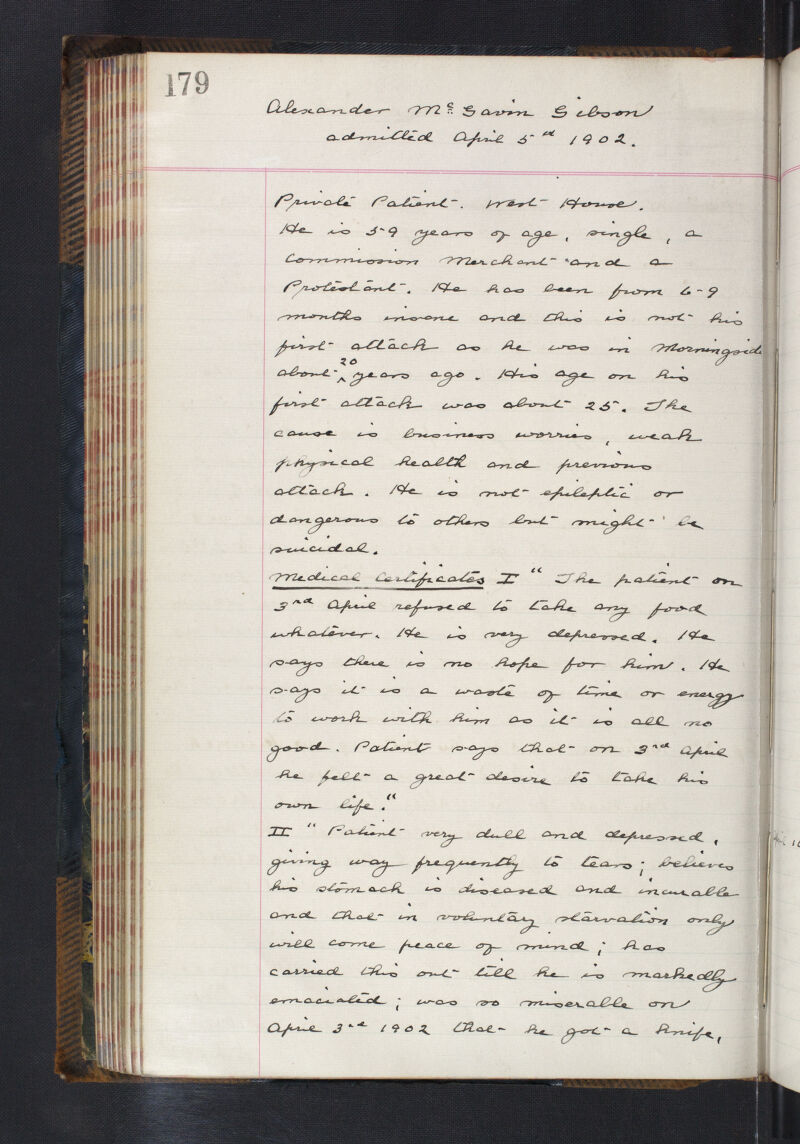 179
Alexander Mc. Gavin Gibson
admitted April 5th 1902.
Private Patient. West House.
He is 59 years of age, single, a
Commission Merchant and a
Protestant. He has been from 6-9
months insane and this is not his
first attack as he was in Morningside
about 20 years ago. His age on his
first attack was about 25. The
cause is business worries, weak
physical health and previous
attack. He is not epileptic or
dangerous to others but might be
suicidal.
Medical Certificates I " The patient on
3rd April refused to take any food
whatever. He is very depressed. He
says there is no hope for him. He
says it is a waste of time or energy
to work with him as it is all no
good. Patient says that on 3rd April
he felt a great desire to take his
own life."
II " Patient very dull and depressed,
giving way frequently to tears; believes
his stomach is diseased and incurable
and that in voluntary starvation only
will come peace of mind; has
carried this out till he is markedly
emaciated; was so miserable on
April 3rd 1902 that he got a knife,